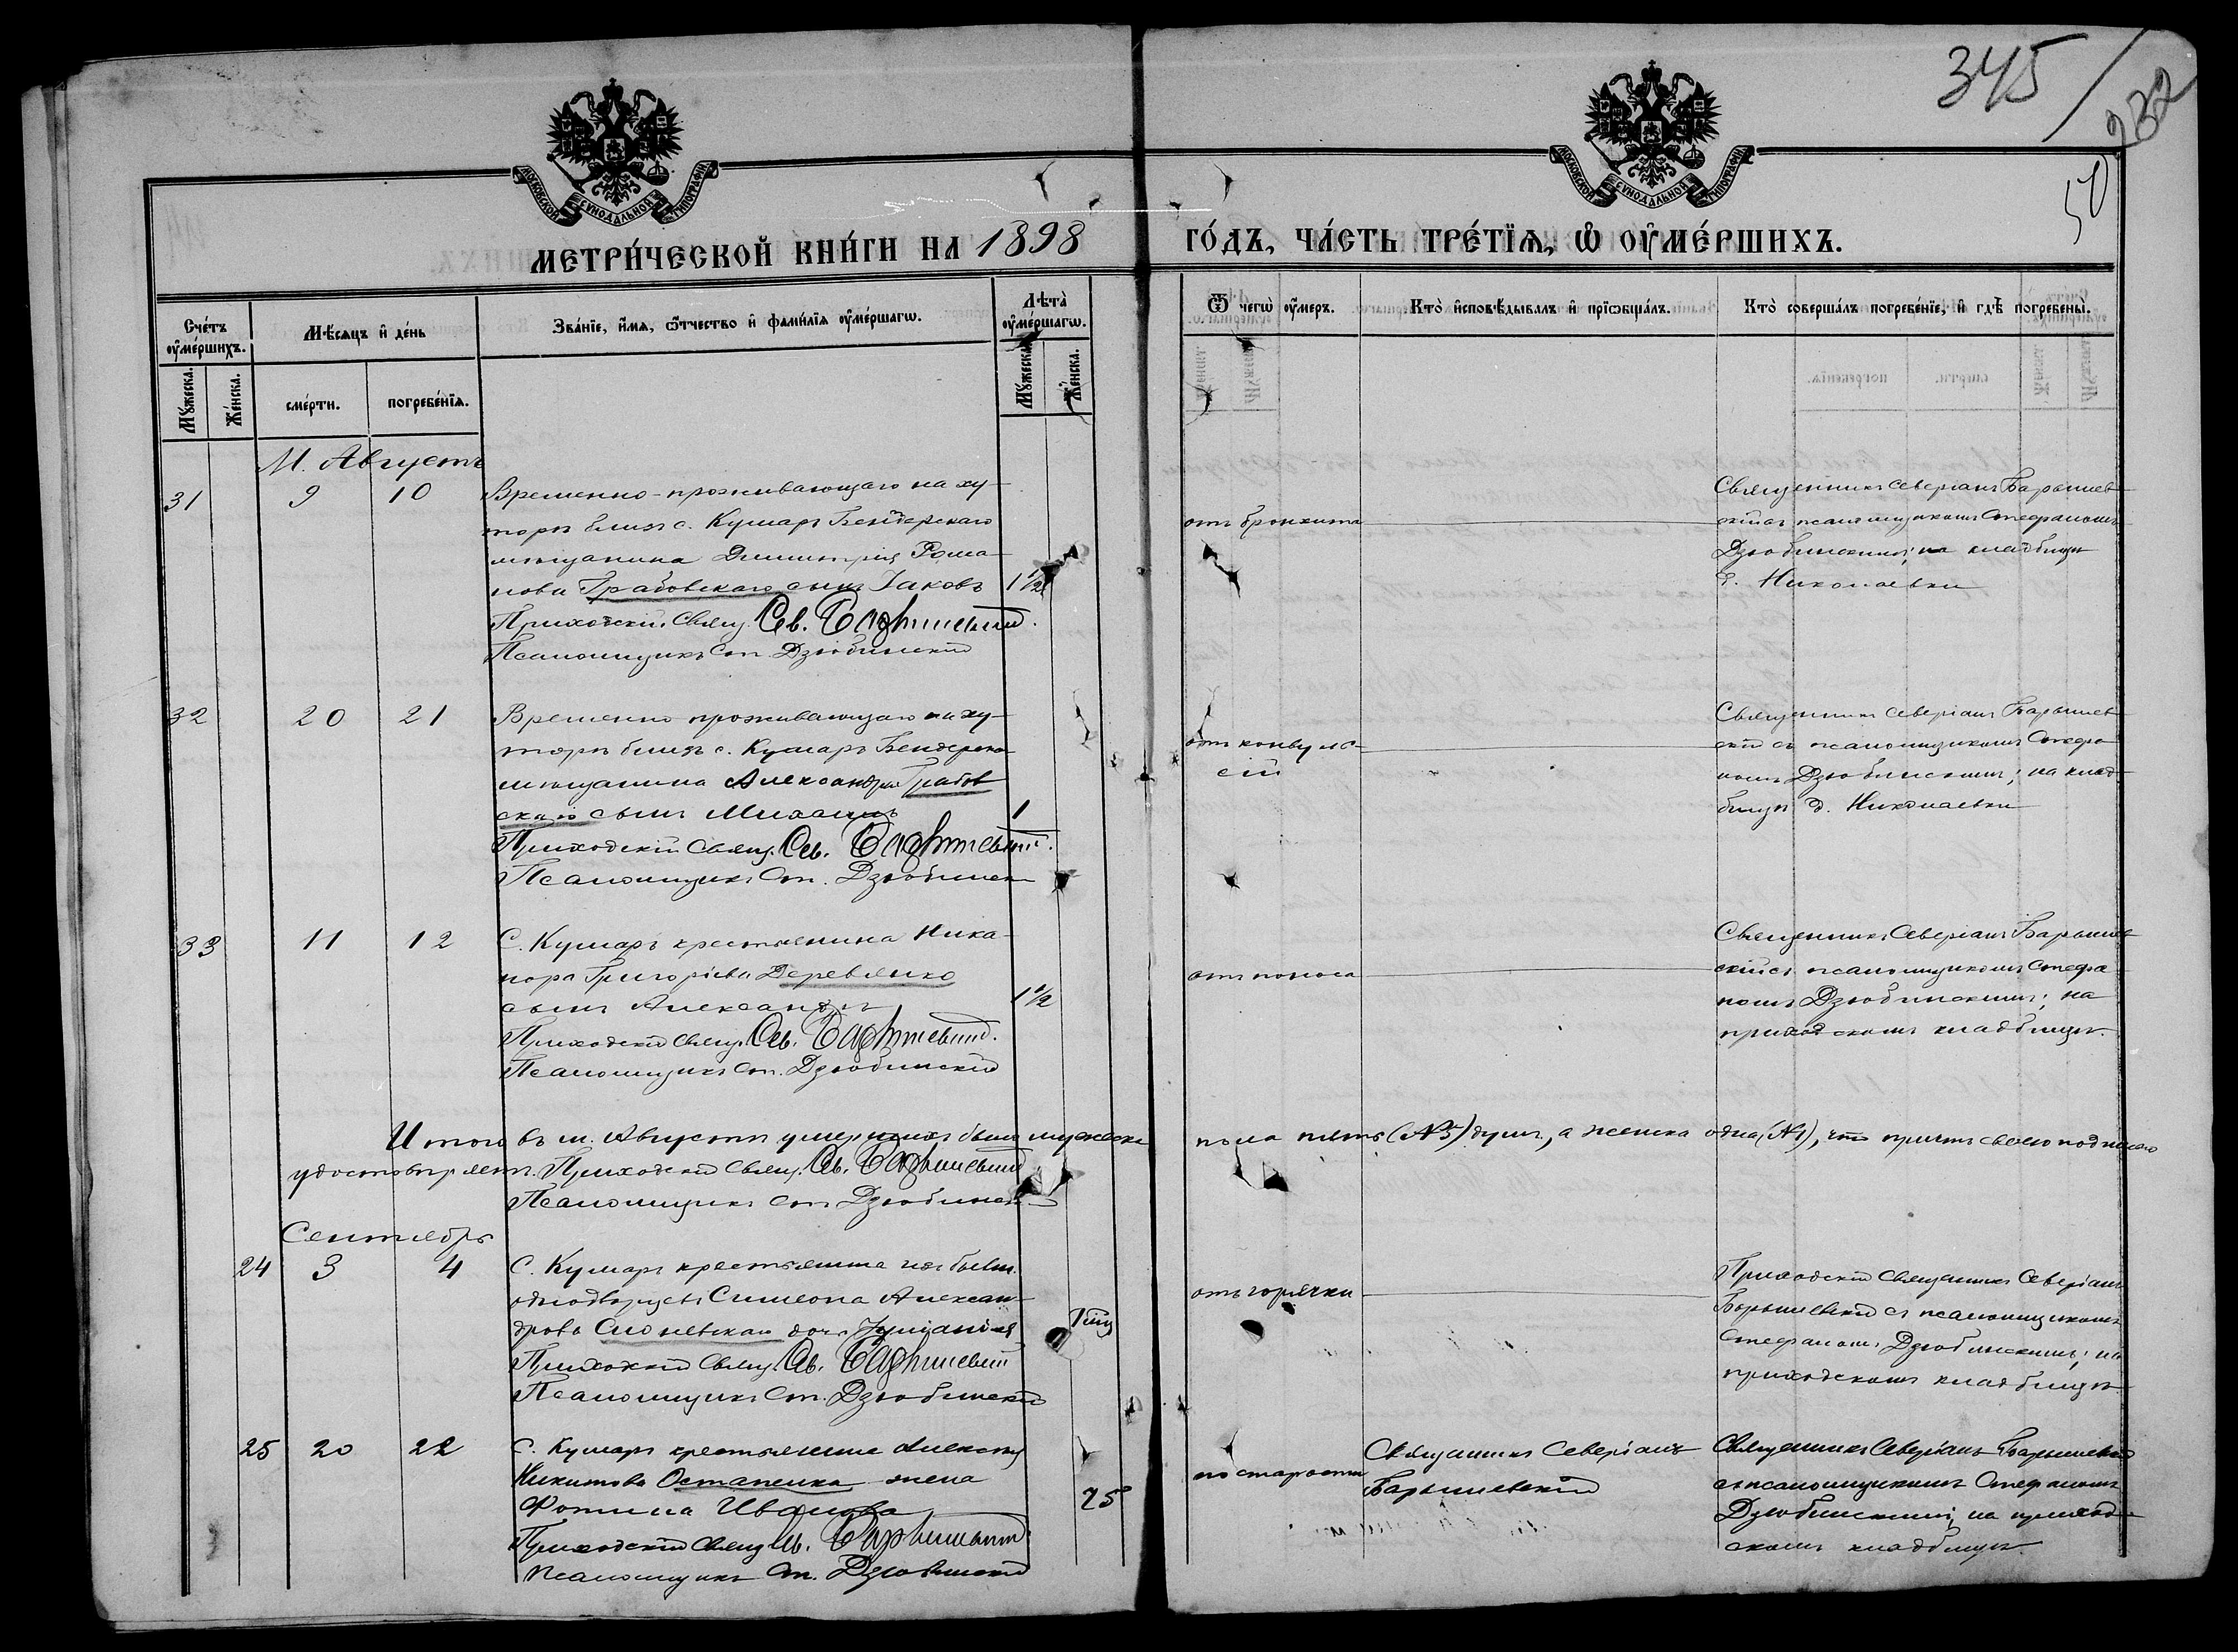 345
232
50
МОСКОВСКОЙ СѴНОДАЛЬНОЙ ТИПОГРАФІИ
МОСКОВСКОЙ СѴНОДАЛЬНОЙ ТИПОГРАФІИ
МЕТРИ́ЧЕСКОЙ КНИ́ГИ НА 1898
ГО́ДЪ, ЧА́СТЬ ТРЕ́ТІЯ, Ѽ ОУ҆МЕ́РШИХЪ.
Сче́тъ оу҆ме́ршихъ.
Мѣ́сяцъ и҆ де́нь
Зва́нїе, и҆́мя, ѻ҆́тчество и҆ фами́лїя оу҆ме́ршагѡ.
Лѣ́та оу҆ме́ршагѡ.
Ѿ чегѡ̀ оу҆́меръ.
Кто̀ и҆сповѣ́дывалъ и҆ прїѡбща́лъ.
Кто̀ соверша́лъ погребе́нїе, и҆ гдѣ̀ погребены̀.
Мꙋ́жеска.
Же́нска.
сме́рти.
погребе́нїя.
Мꙋ́жеска.
Же́нска.
М. Августъ
31 9 10 Временно-проживающаго на ху-
торѣ близъ с. Кумаръ Бендерскаго
мѣщанина Димитрія Рома-
нова Грабовскаго сынъ Іаковъ 1½
Приходскій Свящ. Св. Барышевскій.
Псаломщикъ Ст. Дзюбинскій
отъ бронхита
Священникъ Северіанъ Барышев-
скій съ псаломщикомъ Стефаномъ
Дзюбинскимъ; на кладбищѣ
д. Николаевки
32 20 21 Временно проживающаго на ху-
торѣ близъ с. Кумаръ Бендерска-
мѣщанина Александра Грабов
скаго сынъ Михаилъ 1
Приходскій Свящ. Св. Барышевскій.
Псаломщикъ Ст. Дзюбинскі
отъ конвуль-
сій
Священникъ Северіанъ Барышев-
скій съ псаломщикомъ Стефа-
номъ Дзюбинскимъ; на клад-
бищѣ д. Николаевки
33 11 12 С. Кумаръ крестьянина Ника-
нора Григоріева Деревянко
сынъ Александръ 1½
Приходскій Свящ. Св. Барышевскій.
Псаломщикъ Ст. Дзюбинскій
отъ поноса
Священникъ Северіанъ Барышев-
скій съ псаломщикомъ Стефа-
номъ Дзюбинскимъ; на
приходскомъ кладбищѣ.
Итого въ м. Августѣ умершихъ было мужеска пола пять (№5) душъ, а женска одна (№1), что причтъ своею подписью
удостовѣряетъ. Приходскій Свящ. Св. Барышевскій
Псаломщикъ Ст. Дзюбинскій
Сентябрь
24 3 4 С. Кумаръ крестьянина изъ бывш.
однодворцевъ Симеона Алексан-
дрова дочь Іуліанія
Приходскій Свящ. Св. Барышевскій
Псаломщикъ Ст. Дзюбинскій
отъ горячки
Приходскій Священникъ Северіанъ
Барышевскій съ псаломщикомъ
Стефаномъ Дзюбинскимъ; на
приходскомъ кладбищѣ.
25 20 22 С. Кумаръ крестьянина Алексѣя
Никитова Остапенка жена
Фотина Иванова 75
Приходскій Свящ. Св. Барышевскій
Псаломщикъ Ст. Дзюбинскій
по старости
Священникъ Северіанъ
Барышевскій
Священникъ Северіанъ Барышевскій
съ псаломщикомъ Стефаномъ
Дзюбинскимъ; на приход-
скомъ кладбищѣ.